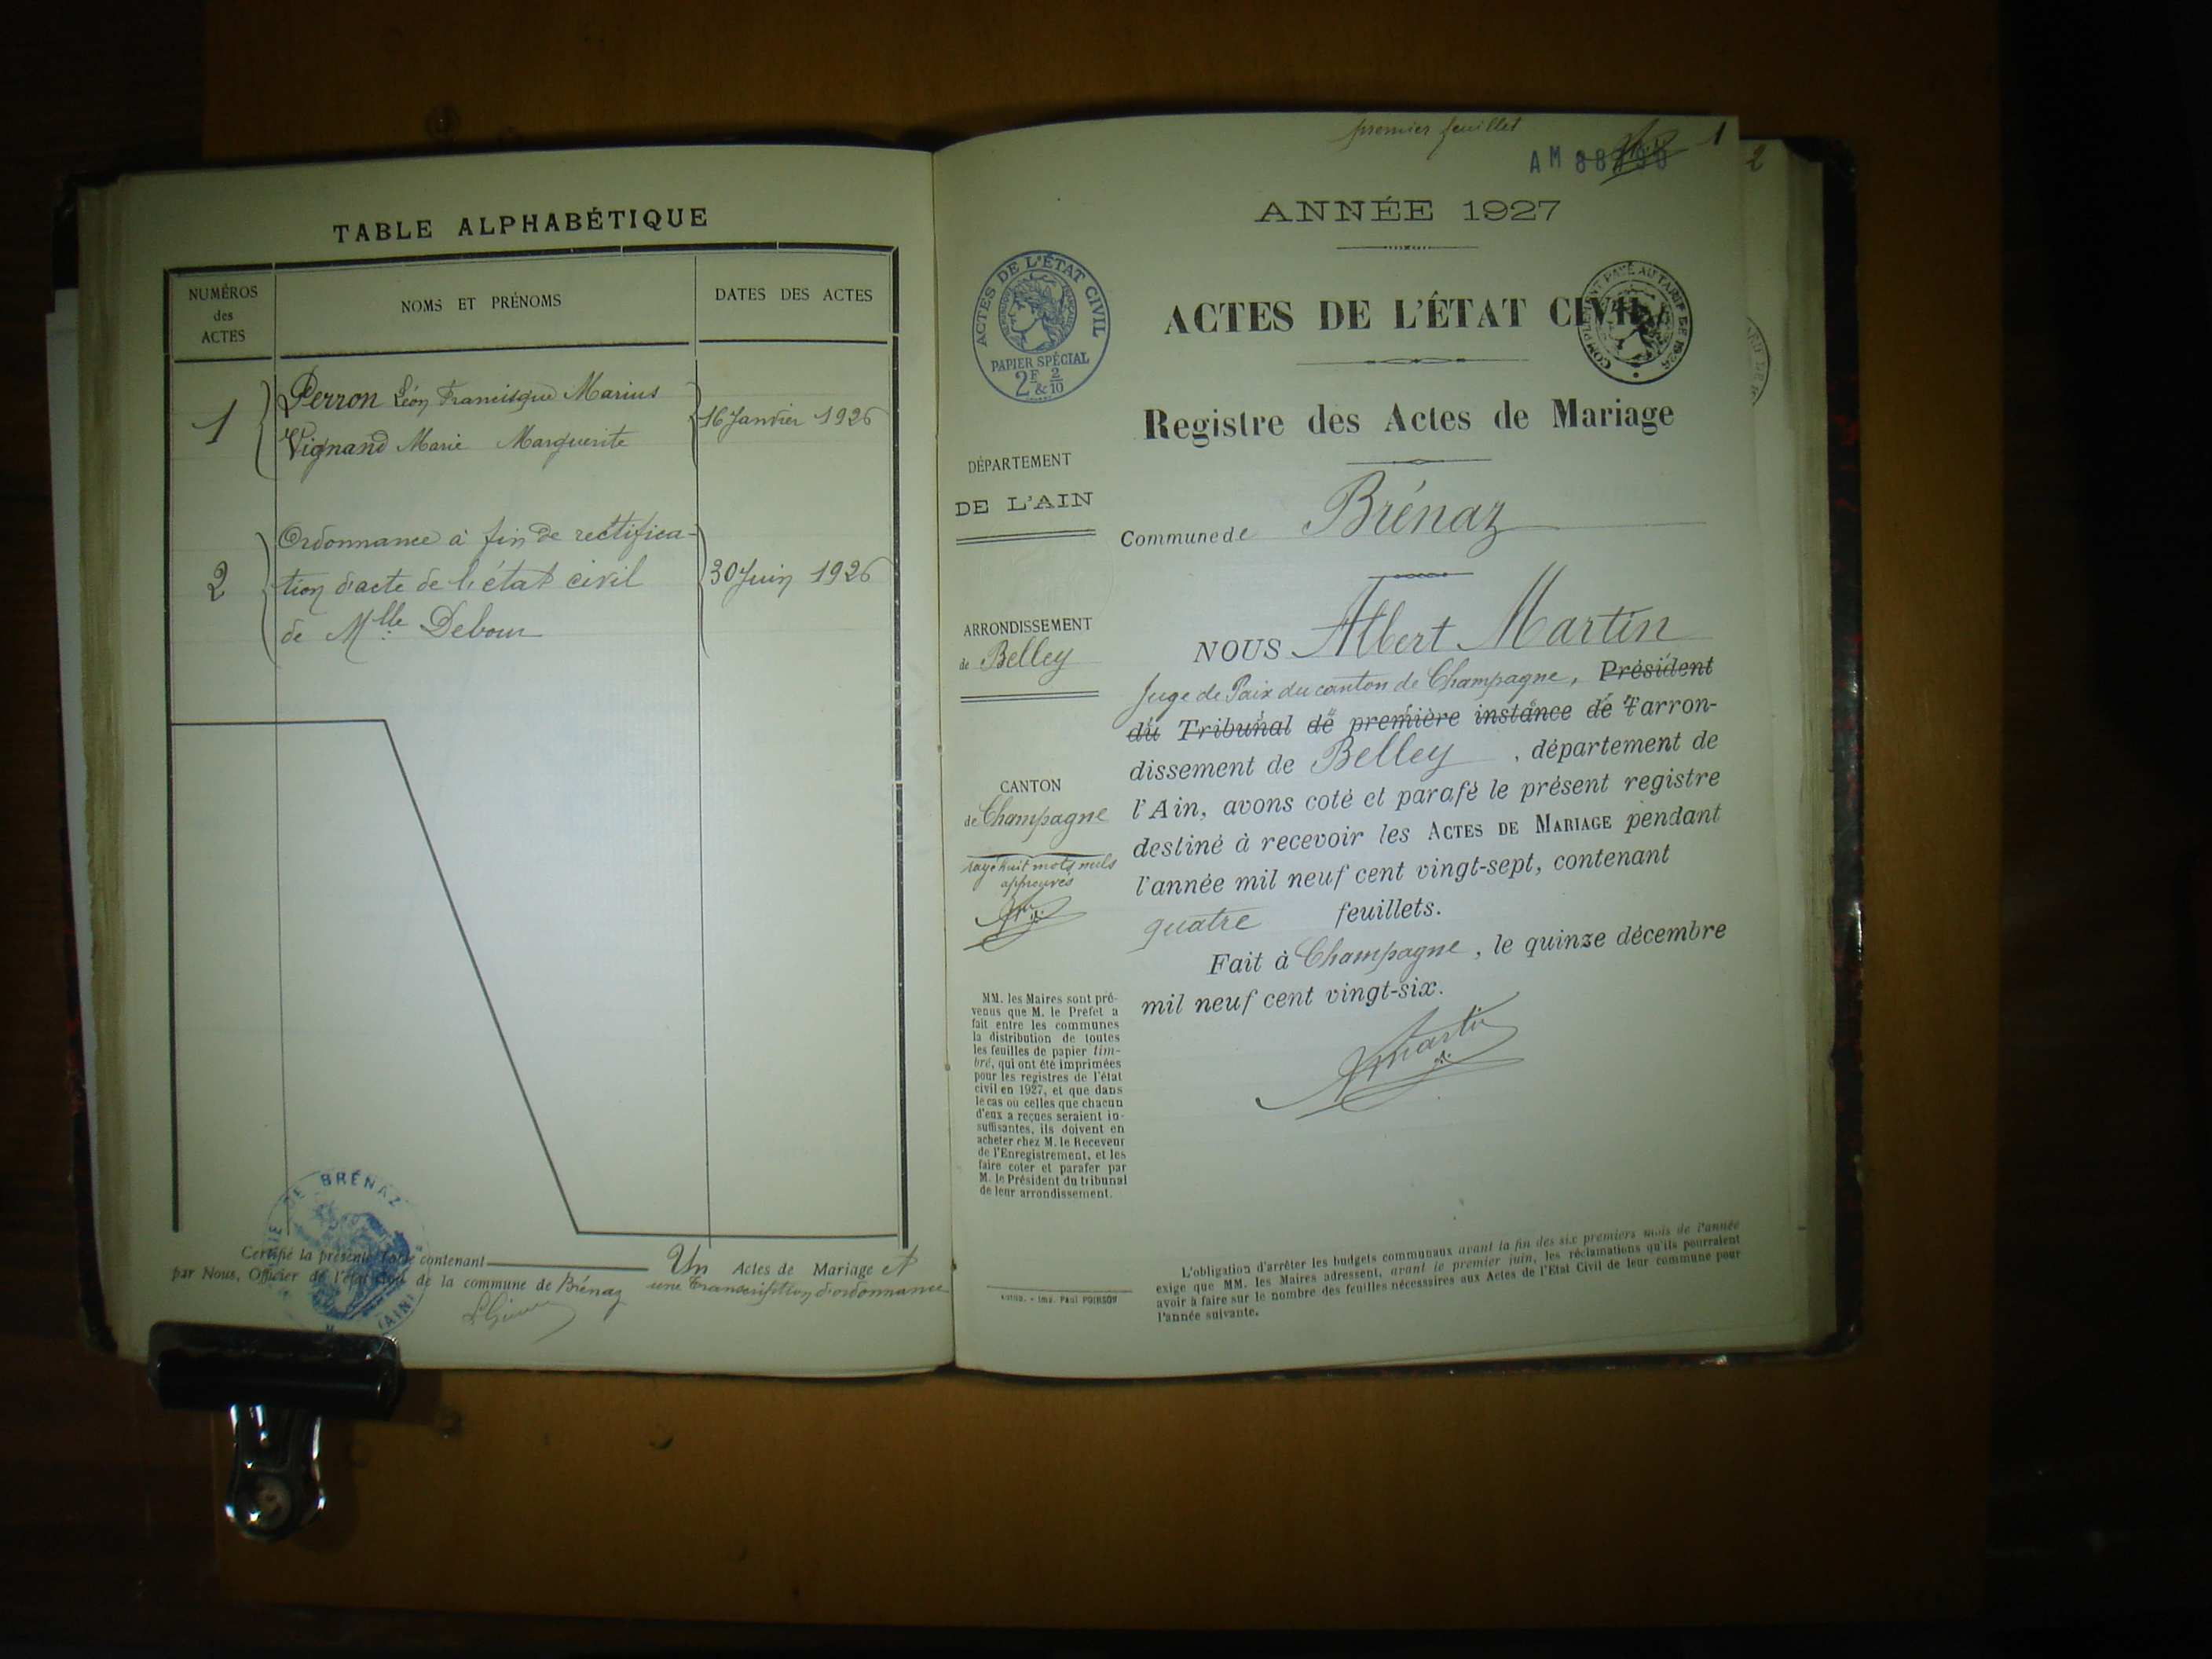 TABLE ALPHABÉTIQUE
NUMÉROS
des
ACTES
NOMS ET PRÉNOMS
DATES DES ACTES
1
Perron Léon Francisque Marius
Vignand Marie Marguerite
16 Janvier 1926
2
Ordonnance à fin de rectifica-
tion d'acte de l'état civil
de Mlle Debour
30 Juin 1926
MAIRIE DE BRÉNAZ
(AIN)
Certifié la présente Table contenant Un Actes de Mariage et
par Nous, Officier de l'état civil de la commune de Brénaz une transcription d'ordonnance
premier feuillet
1
2
AM
ANNÉE 1927
ACTES DE L'ÉTAT CIVIL
RÉPUBLIQUE FRANÇAISE
PAPIER SPÉCIAL
2F 2
& 10
ACTES DE L'ÉTAT CIVIL
COMPLÉMENT PAYÉ AU TARIF DE 1926
Registre des Actes de Mariage
DÉPARTEMENT
DE L'AIN
Commune de Brénaz
ARRONDISSEMENT
de Belley
CANTON
de Champagne
rayé huit mots nuls
approuvés
NOUS Albert Martin
Juge de Paix du canton de Champagne, Président
du Tribunal de première instance de l'arron-
dissement de Belley, département de
l'Ain, avons coté et parafé le présent registre
destiné à recevoir les ACTES DE MARIAGE pendant
l'année mil neuf cent vingt-sept, contenant
quatre feuillets.
Fait à Champagne, le quinze décembre
mil neuf cent vingt-six.
AMartin
MM. les Maires sont pré-
venus que M. le Préfet a
fait entre les communes
la distribution de toutes
les feuilles de papier tim-
bré, qui ont été imprimées
pour les registres de l'état
civil en 1927, et que dans
le cas où celles que chacun
d'eux a reçues seraient in-
suffisantes, ils doivent en
acheter chez M. le Receveur
de l'Enregistrement, et les
faire coter et parafer par
M. le Président du tribunal
de leur arrondissement.
Imp. Paul POIRSON
L'obligation d'arrêter les budgets communaux avant la fin des six premiers mois de l'année
exige que MM. les Maires adressent, avant le premier juin, les réclamations qu'ils pourraient
avoir à faire sur le nombre des feuilles nécessaires aux Actes de l'Etat Civil de leur commune pour
l'année suivante.